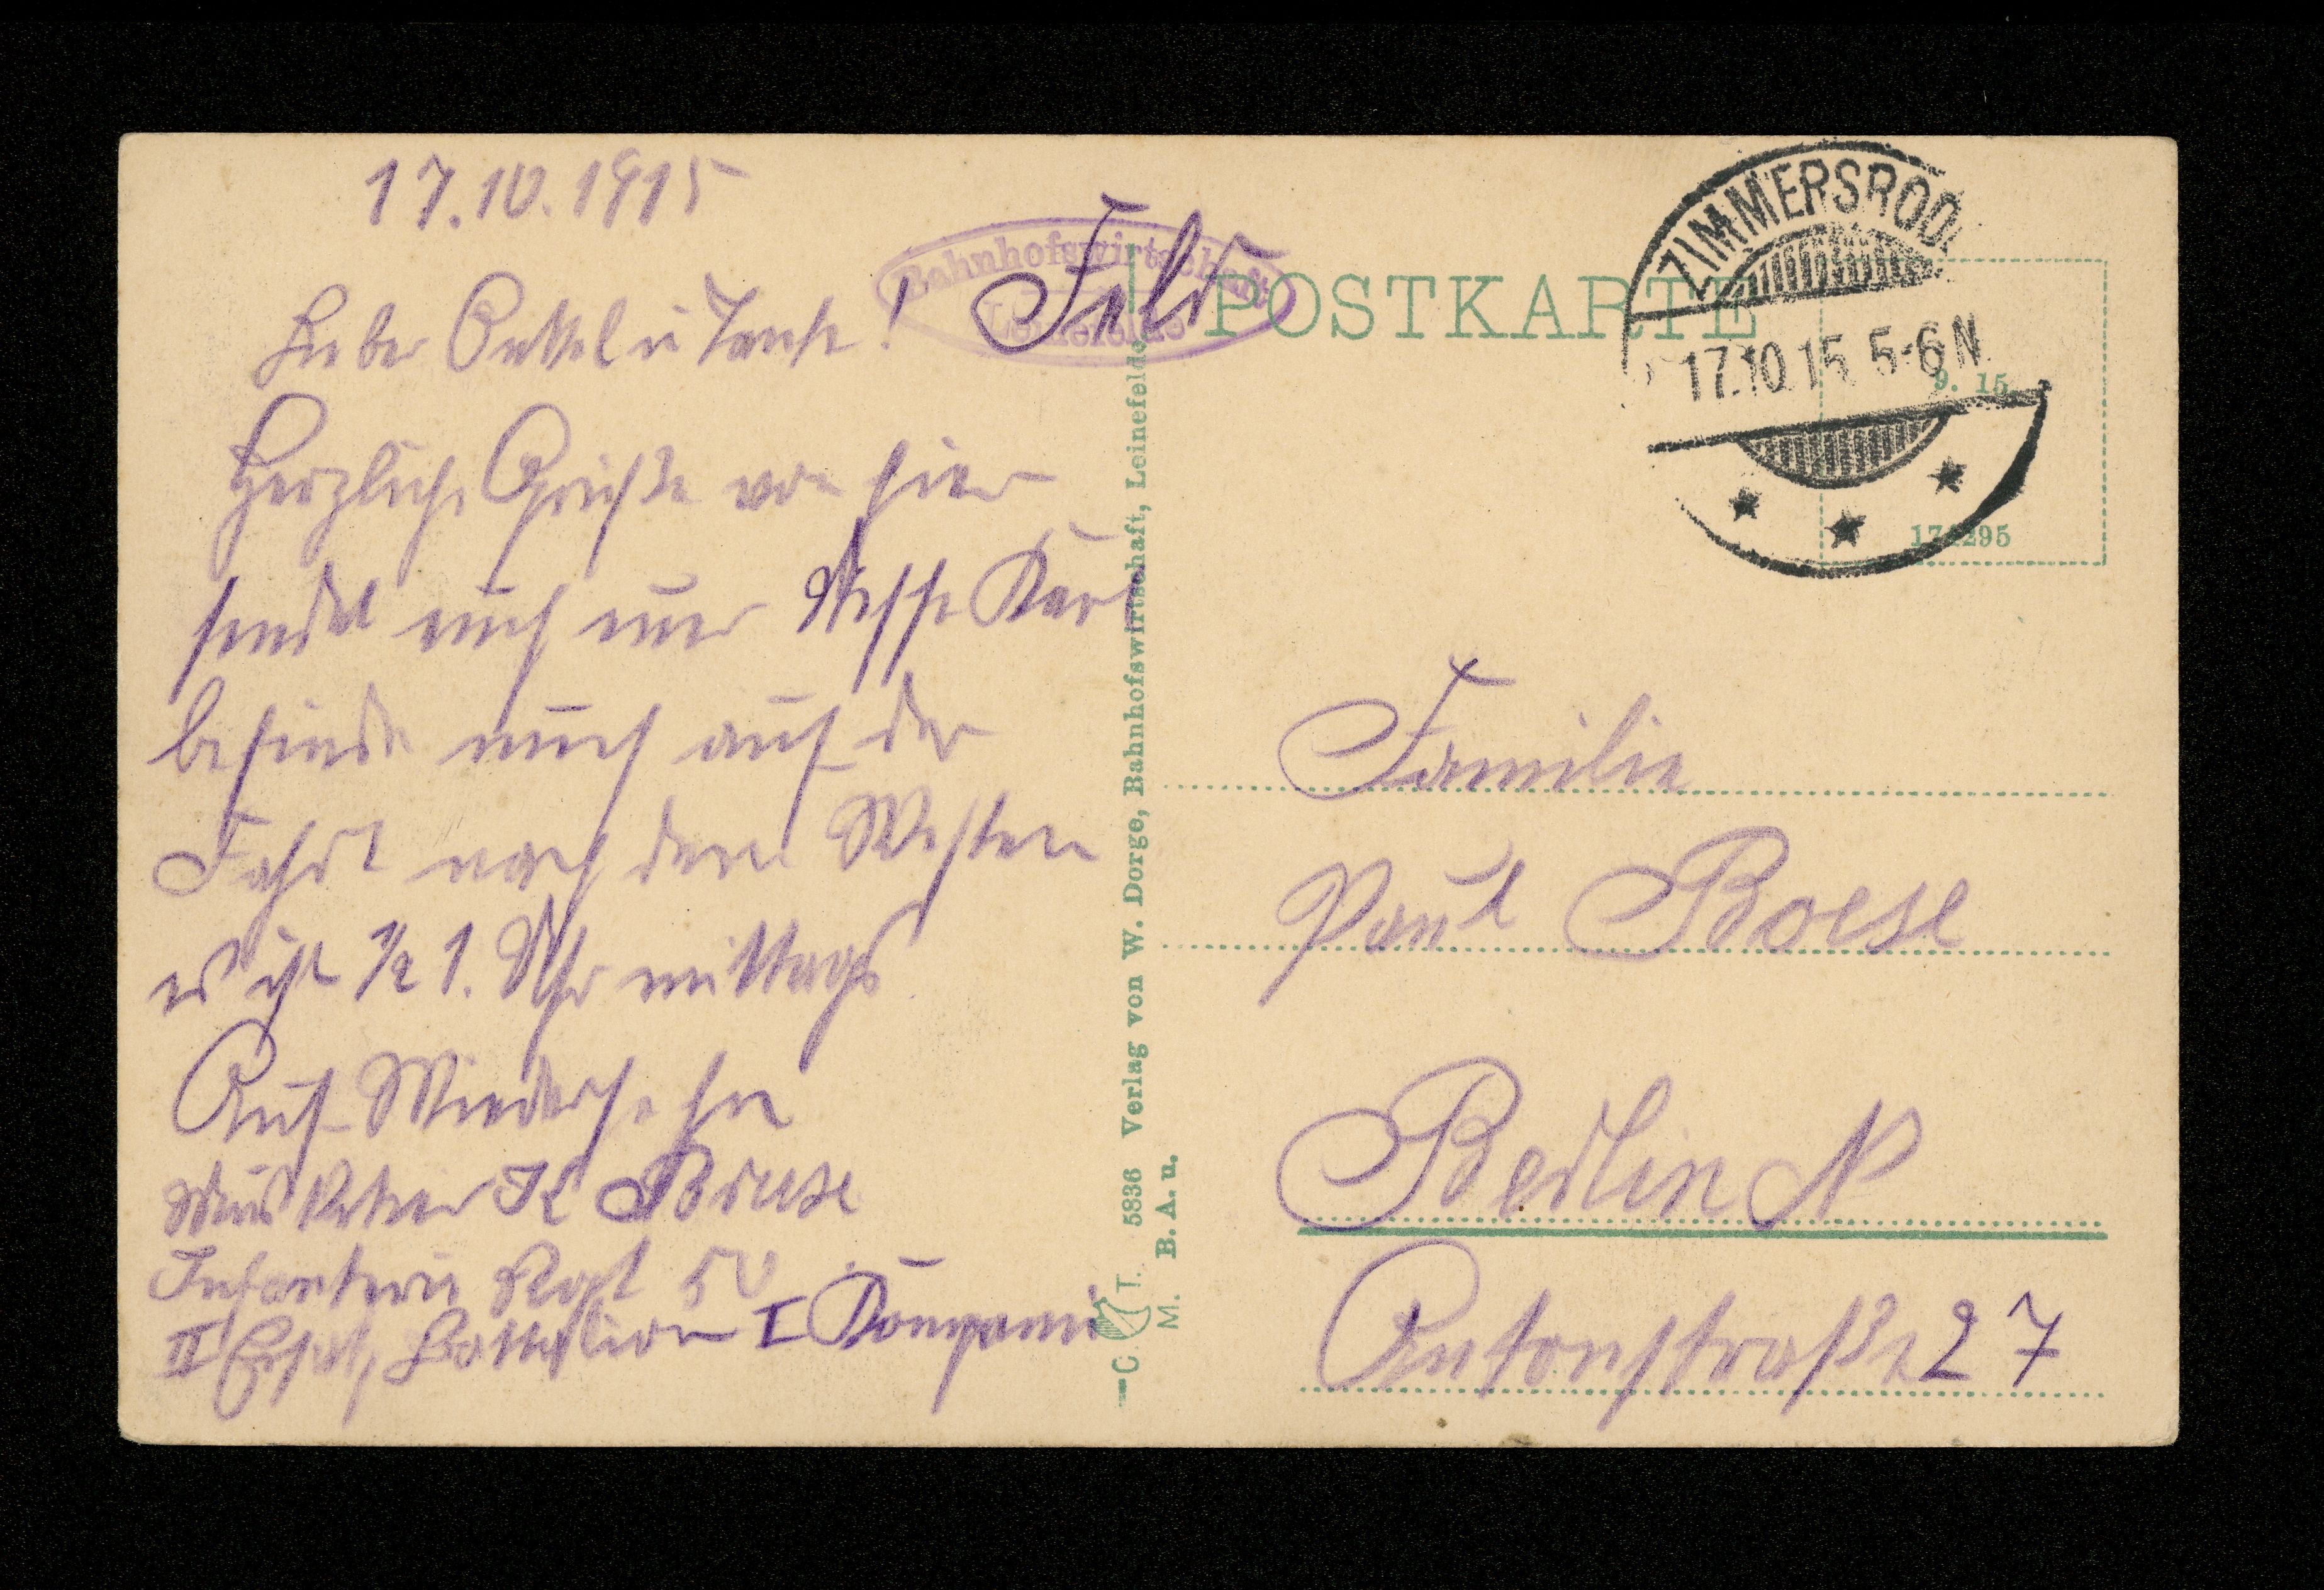 17.10.1915
Lieber Onkel u Tante!
Herzliche Grüße von hier
sendet euch euer Neffe Karl
befinde mich auf der
Fahrt nach dem Westen
es ist 1/2 1. Uhr mittags
Auf Wiedersehn
Musketier K Boese
Infanterie Regt 50
II Ersatz Battallion I Kompanie
Bahnhofswirtschaft
Leinefelde
Feld
POSTKARTE
ZIMMERSRODE
17.10.15 5-6 N
9. 15.
174295
C. T. 5836 Verlag von W. Dorge, Bahnhofswirtschaft, Leinefelde
M. B. A. u.
Familie
Paul Boese
Berlin N
Antonstraße 27